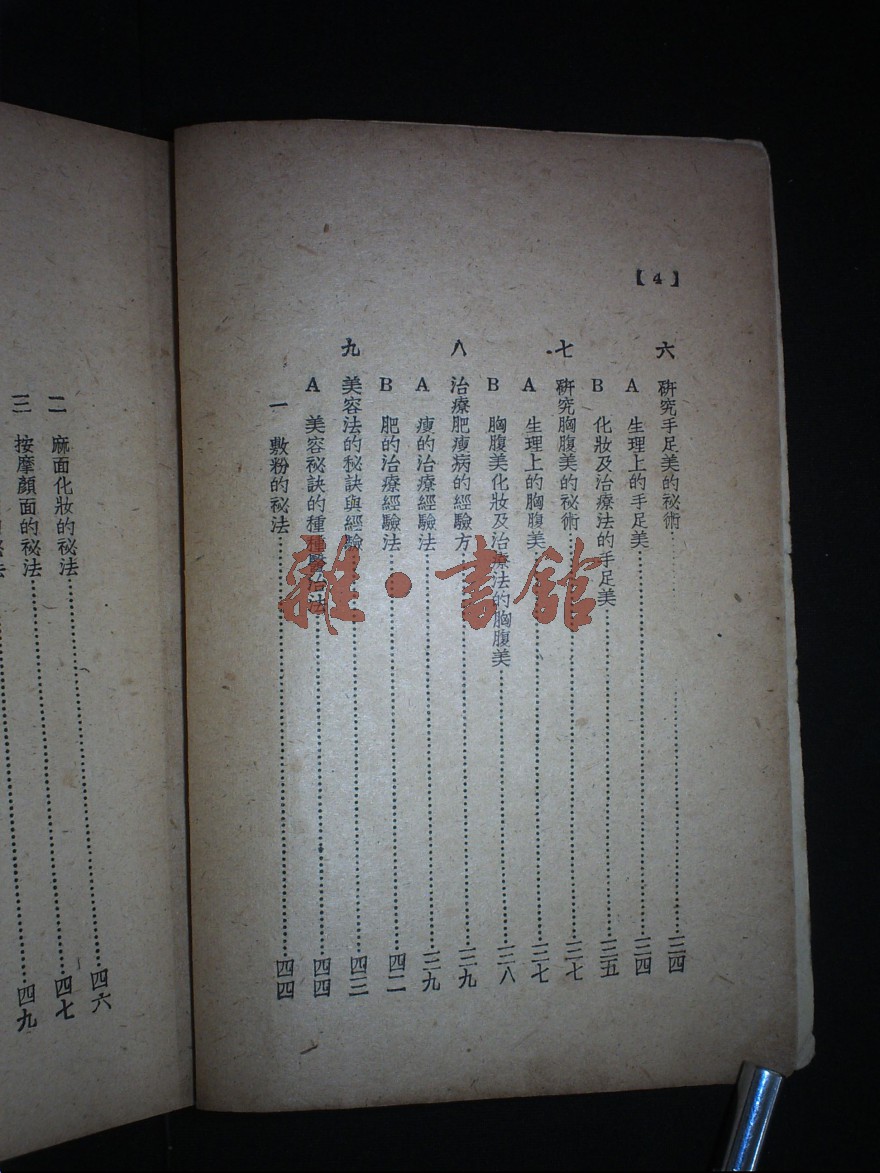 【4】
六 研究手足美的祕術 三四
A 生理上的手足美 三四
B 化妝及治療法的手足美 三五
七 研究胸腹美的祕術 三七
A 生理上的胸腹美 三七
B 胸腹美化妝及治療法的胸腹美 三八
八 治療肥瘦病的經驗方 三九
A 瘦的治療經驗法 三九
B 肥的治療經驗法 四二
九 美容法的秘訣與經驗 四三
A 美容祕訣的種種醫治法 四四
一 敷粉的祕法 四四
雜·書館
四六
二 麻面化妝的祕法 四七
三 按摩顏面的祕法 四九